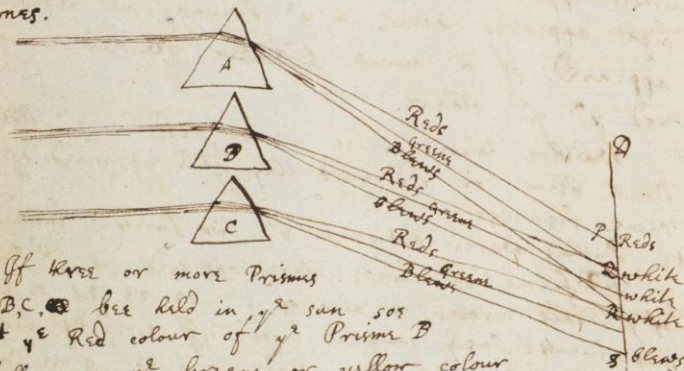 A
B
C
Reds
Greene
Blews
Reds
Greene
Blews
Reds
Greene
Blews
P Reds
Q white
white
R white
S blews
If three or more Prismes
B, C, bee held in yᵉ sun soe
yᵉ Red colour of yᵉ Prisme B
yᵉ greene or yellow colour